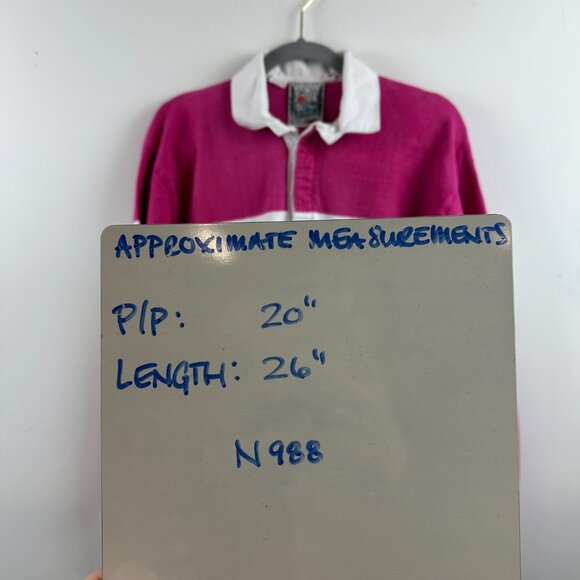 APPROXIMATE MEASUREMENTS
P/P: 20"
LENGTH: 26"
N988